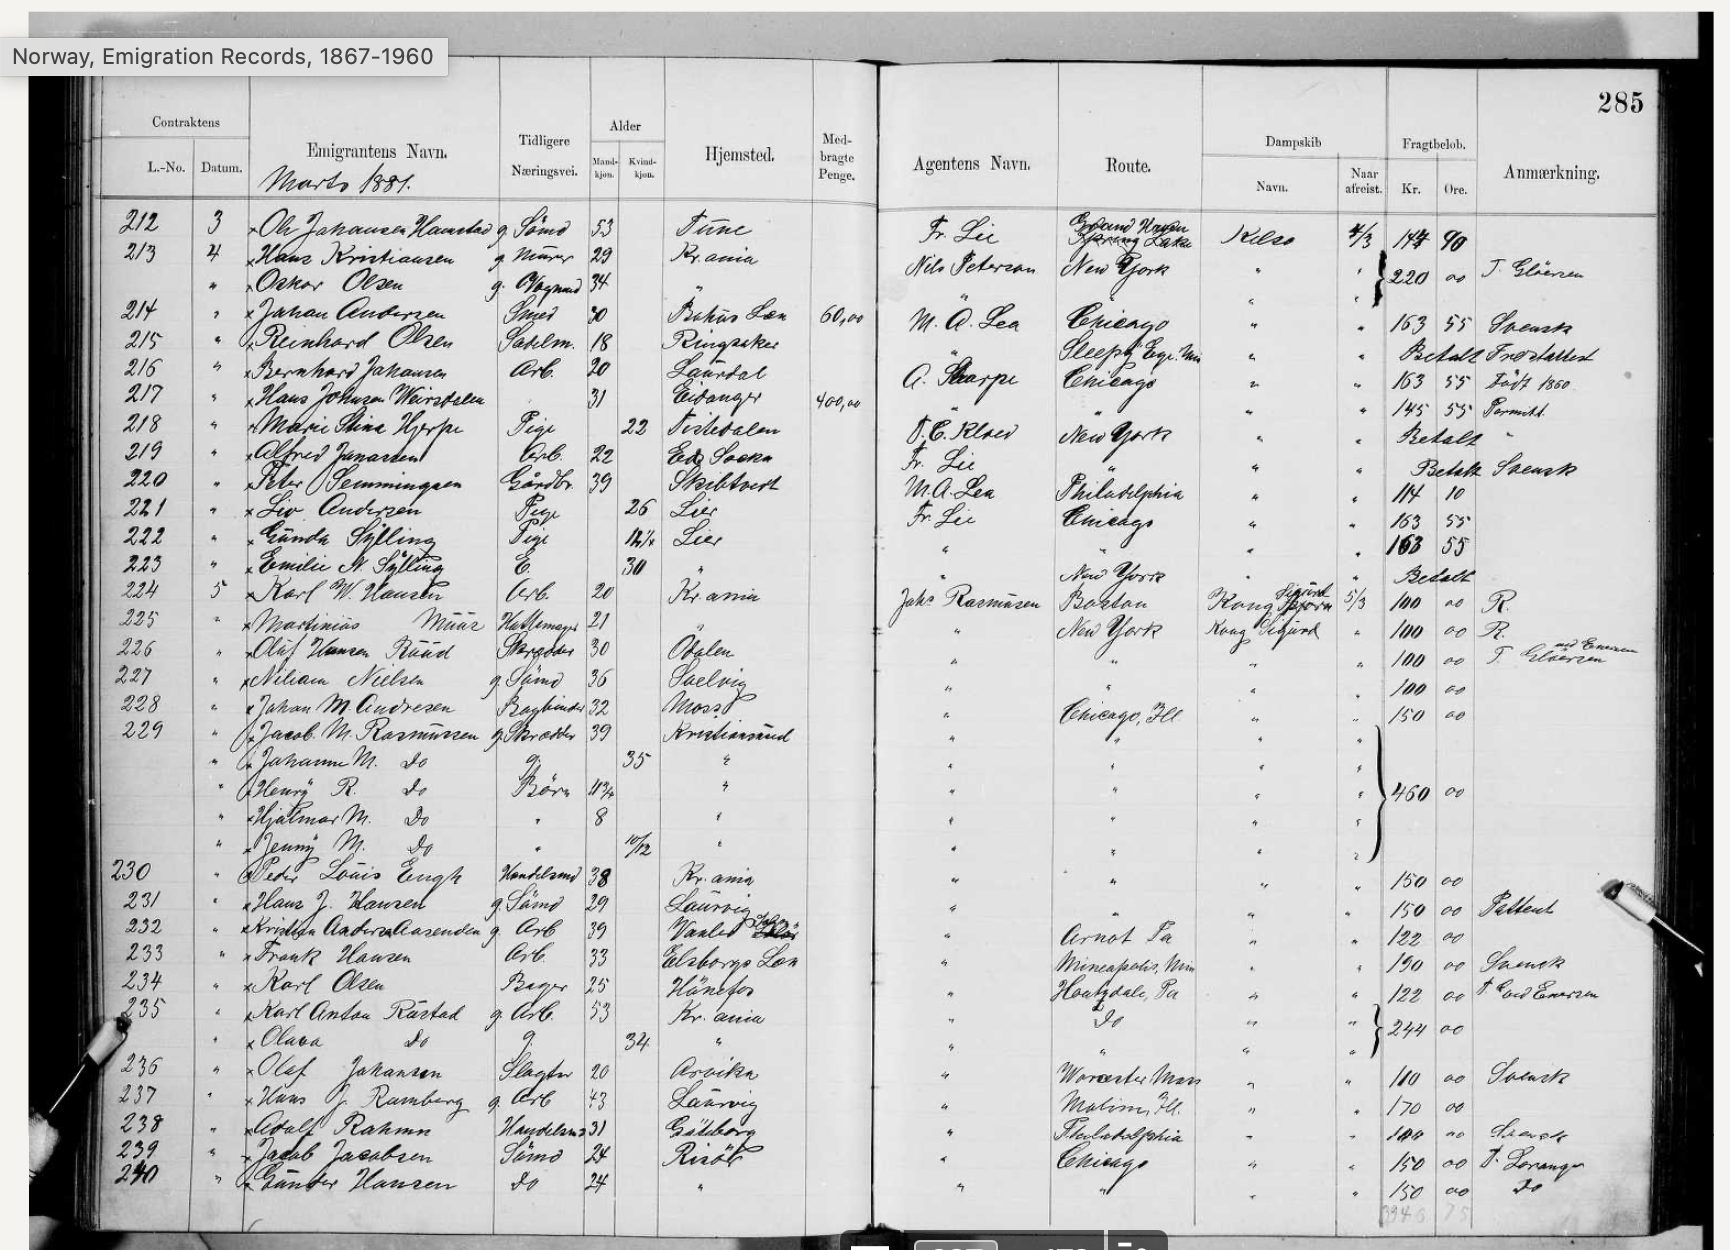 Norway, Emigration Records, 1867-1960
285
Contraktens Emigrantens Navn. Tidligere Næringsvei. Alder Hjemsted. Med-bragte Penge. Agentens Navn. Route. Dampskib Fragtbeløb. Anmærkning.
L.-No. Datum. Mand-kjøn. Kvind-kjøn. Navn. Naar afreist. Kr. Øre.
Marts 1881.
212 3 Ole Johansen g. Sömd 53 Tune Fr. Lie Grand Haven Spring Lake Kelso 4/3 90
213 4 Hans Kristiansen g. Murer 29 Kr.ania Nils Peterson New York " " 220 00 T. Glöersen
" Oskar Olsen g. 34 " " " "
214 " Johan Andersen Smed 30 Bahus Læn 60,00 M. A. Lea Chicago " " 163 55 Svensk
215 " Reinhard Olsen Sadelm. 18 Ringsaker " Sleepy Eye. Min " " Betalt
216 " Bernhard Johansen Arb. 20 Laurdal A. Sharpe Chicago " " 163 55 Födt 1860
217 " Hans Johnsen 31 Eidanger 400,00 " " " " 145 55 Permitt.
218 " Marie Stina Hjerpe Pige 22 Tistedalen T. C. New York " " Betalt "
219 " Alfred Arb. 22 Fr. Lie " " " Betalt Svensk
220 " Peter Semmingsen Gårdbr. 39 Skibtvert M. A. Lea Philadelphia " " 114 10
221 " Liv Andersen Pige 26 Lier Fr. Lie Chicago " " 163 55
222 " Gunda Sylling Pige Lier " " " " 163 55
223 " Emilie N. Sylling E. 30 " " New York " " Betalt
224 5 Karl W. Hansen Arb. 20 Kr.ania Johs Rasmusen Boston Kong Sigurd 5/3 100 00 R.
225 " Martinius Muus Hattemager 21 " " New York Kong Sigurd " 100 00 R.
226 " Oluf Hansen Ruud 30 Odalen " " " " 100 00 T. Glöersen
227 " Nielsen g. Sömd 36 Soelvig " " " " 100 00
228 " Johan M Andresen Bogbinder 32 Moss " Chicago, Ill. " " 150 00
229 " Jacob M. Rasmussen g. Skrædder 39 Kristiansund " " " "
" Johanne M. Do g. 35 " " " " "
" Henry R. Do Börn 11 3/4 " " " " " 460 00
" Hjalmar M. Do " 8 " " " " "
" Jenny M. Do " 10/12 " " " " "
230 " Peder Louis Engh Handelsmd 38 Kr.ania " " " " 150 00
231 " Hans J. Hansen g. Sömd 29 Laurvig " " " " 150 00 Pattent
232 " Kristian Anders Aasenden g. Arb 39 Vaaler " Arnot Pa " " 122 00
233 " Frank Hansen Arb. 33 Elsborgs Læn " Mineapolis, Min " " 190 00 Svensk
234 " Karl Olsen Bager 25 Hönefos " Houtzdale, Pa " " 122 00
235 " Karl Anton Rustad g. Arb. 53 Kr.ania " Do " " 244 00
" Olava Do g. 34 " " " " "
236 " Olaf Johansen Slagter 20 Arvika " Worcester Mass " " 110 00 Svensk
237 " Hans J. Ramberg g. Arb 43 Laurvig " Moline, Ill. " " 170 00
238 " Adolf Rahmn Handelsmd 31 Göteborg " Philadelphia " " 100 00 Svensk
239 " Jacob Jacobsen Sömd 24 Risör " Chicago " " 150 00
240 " Gunder Hansen Do 24 " " " " " 150 00 Do